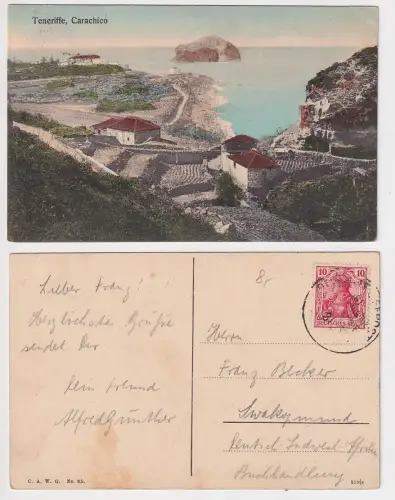 Teneriffe, Carachico
Lieber Franz!
Herzlichste Grüße
sendet Dir
Dein Freund
Alfred Günther
8,
10 10
DEUTSCHES REICH
Herrn
Franz Becker
Swakopmund
Deutsch Südwest Afrika
Buchhandlung
C. A. W. G. No. 85.